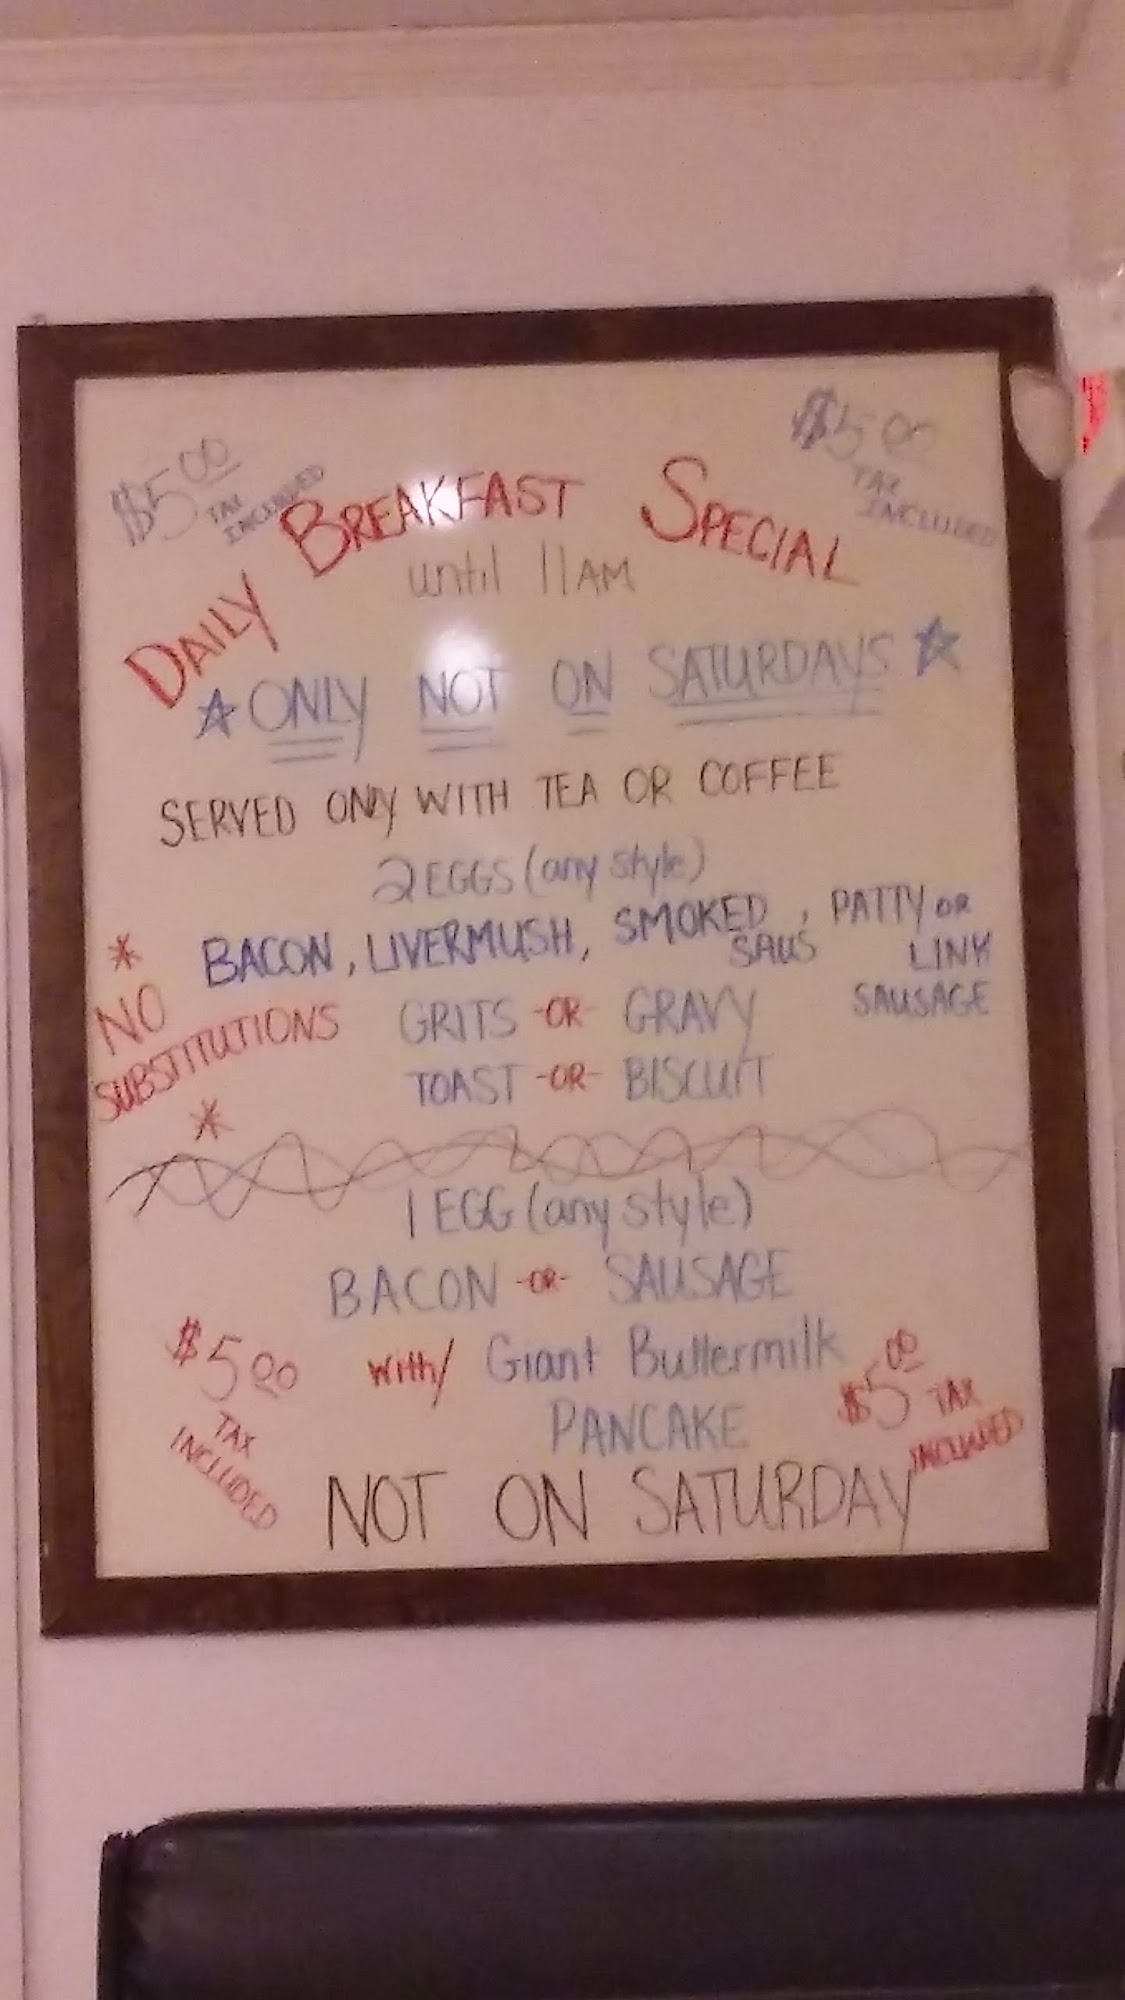 $5.00 TAX INCLUDED
$5.00 TAX INCLUDED
DAILY BREAKFAST SPECIAL
until 11AM
☆ ONLY NOT ON SATURDAYS ☆
SERVED ONLY WITH TEA OR COFFEE
2 EGGS (any style)
BACON, LIVERMUSH, SMOKED SAUS, PATTY OR LINK SAUSAGE
* NO SUBSTITUTIONS *
GRITS -OR- GRAVY
TOAST -OR- BISCUIT
1 EGG (any style)
BACON -OR- SAUSAGE
with/ Giant Buttermilk
PANCAKE
$5.00 TAX INCLUDED
$5.00 TAX INCLUDED
NOT ON SATURDAY